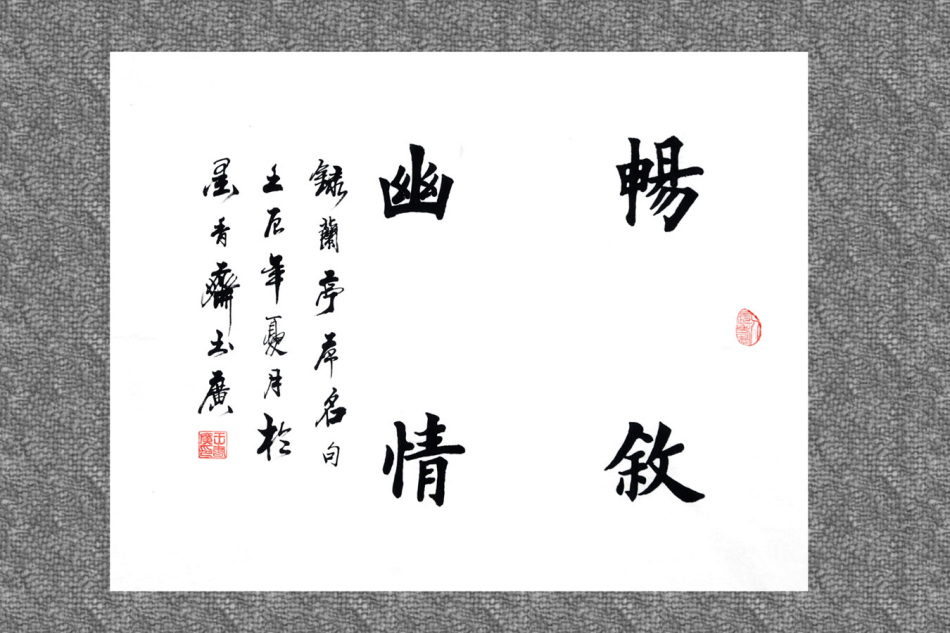 暢敘
幽情
錄蘭亭序名句
壬辰年夏月於
墨香齋廣